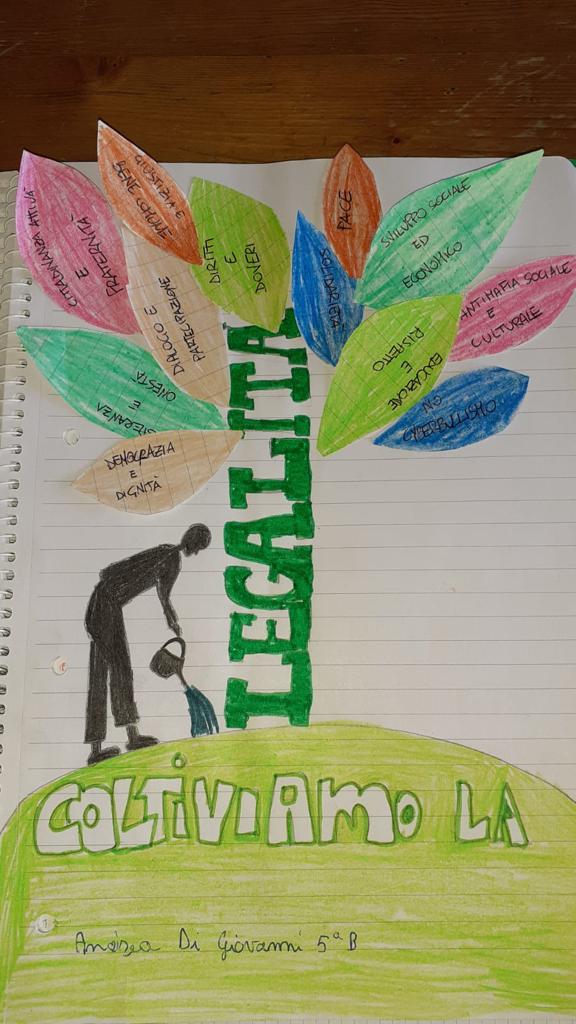 CITTADINANZA ATTIVA
E
FRATERNITÀ
GIUSTIZIA E
BENE COMUNE
DIALOGO E
PARTECIPAZIONE
DIRITTI
E
DOVERI
PACE
SOLIDARIETÀ
SVILUPPO SOCIALE
ED
ECONOMICO
ANTIMAFIA SOCIALE
E
CULTURALE
EDUCAZIONE
E
RISPETTO
NO
CYBERBULLISMO
ONESTÀ
E
DEMOCRAZIA
E
DIGNITÀ
LEGALITÀ
COLTIVIAMO LA
Andrea Di Giovanni 5ª B